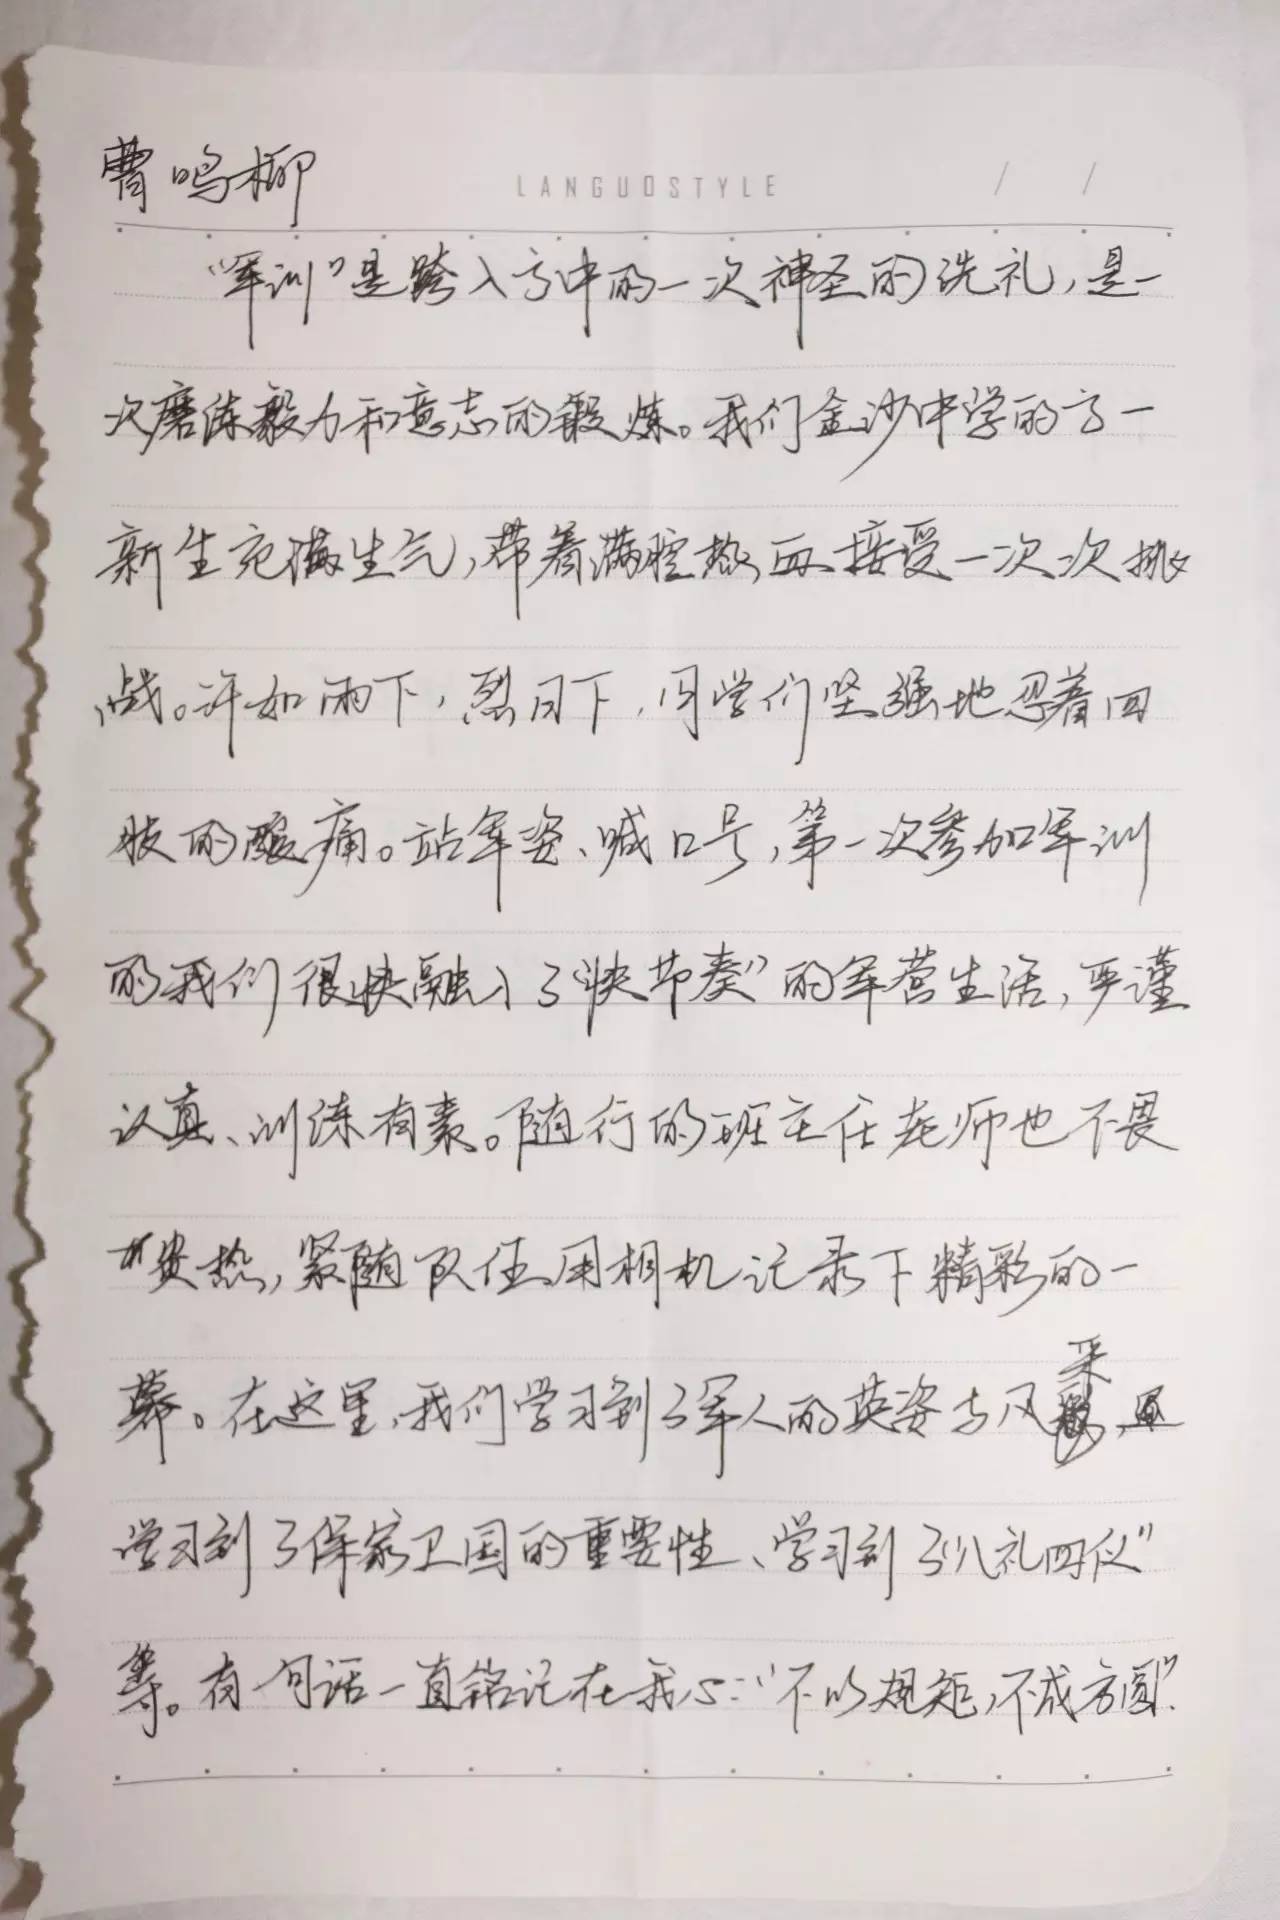 曹鸣柳
LANGUOSTYLE / /
“军训”是跨入高中的一次神圣的洗礼，是一
次磨练毅力和意志的锻炼。我们金沙中学的高一
新生充满生气，带着满腔热血接受一次次挑
战。汗如雨下，烈日下，同学们坚强地忍着四
肢的酸痛。站军姿、喊口号，第一次参加军训
的我们很快融入了“快节奏”的军营生活，严谨
认真、训练有素。随行的班主任老师也不畏
炎热，紧随队伍用相机记录下精彩的一
幕。在这里，我们学习到了军人的英姿与风采，
学习到了保家卫国的重要性、学习到了“八礼四仪”
等。有一句话一直铭记在我心：“不以规矩，不成方圆”.